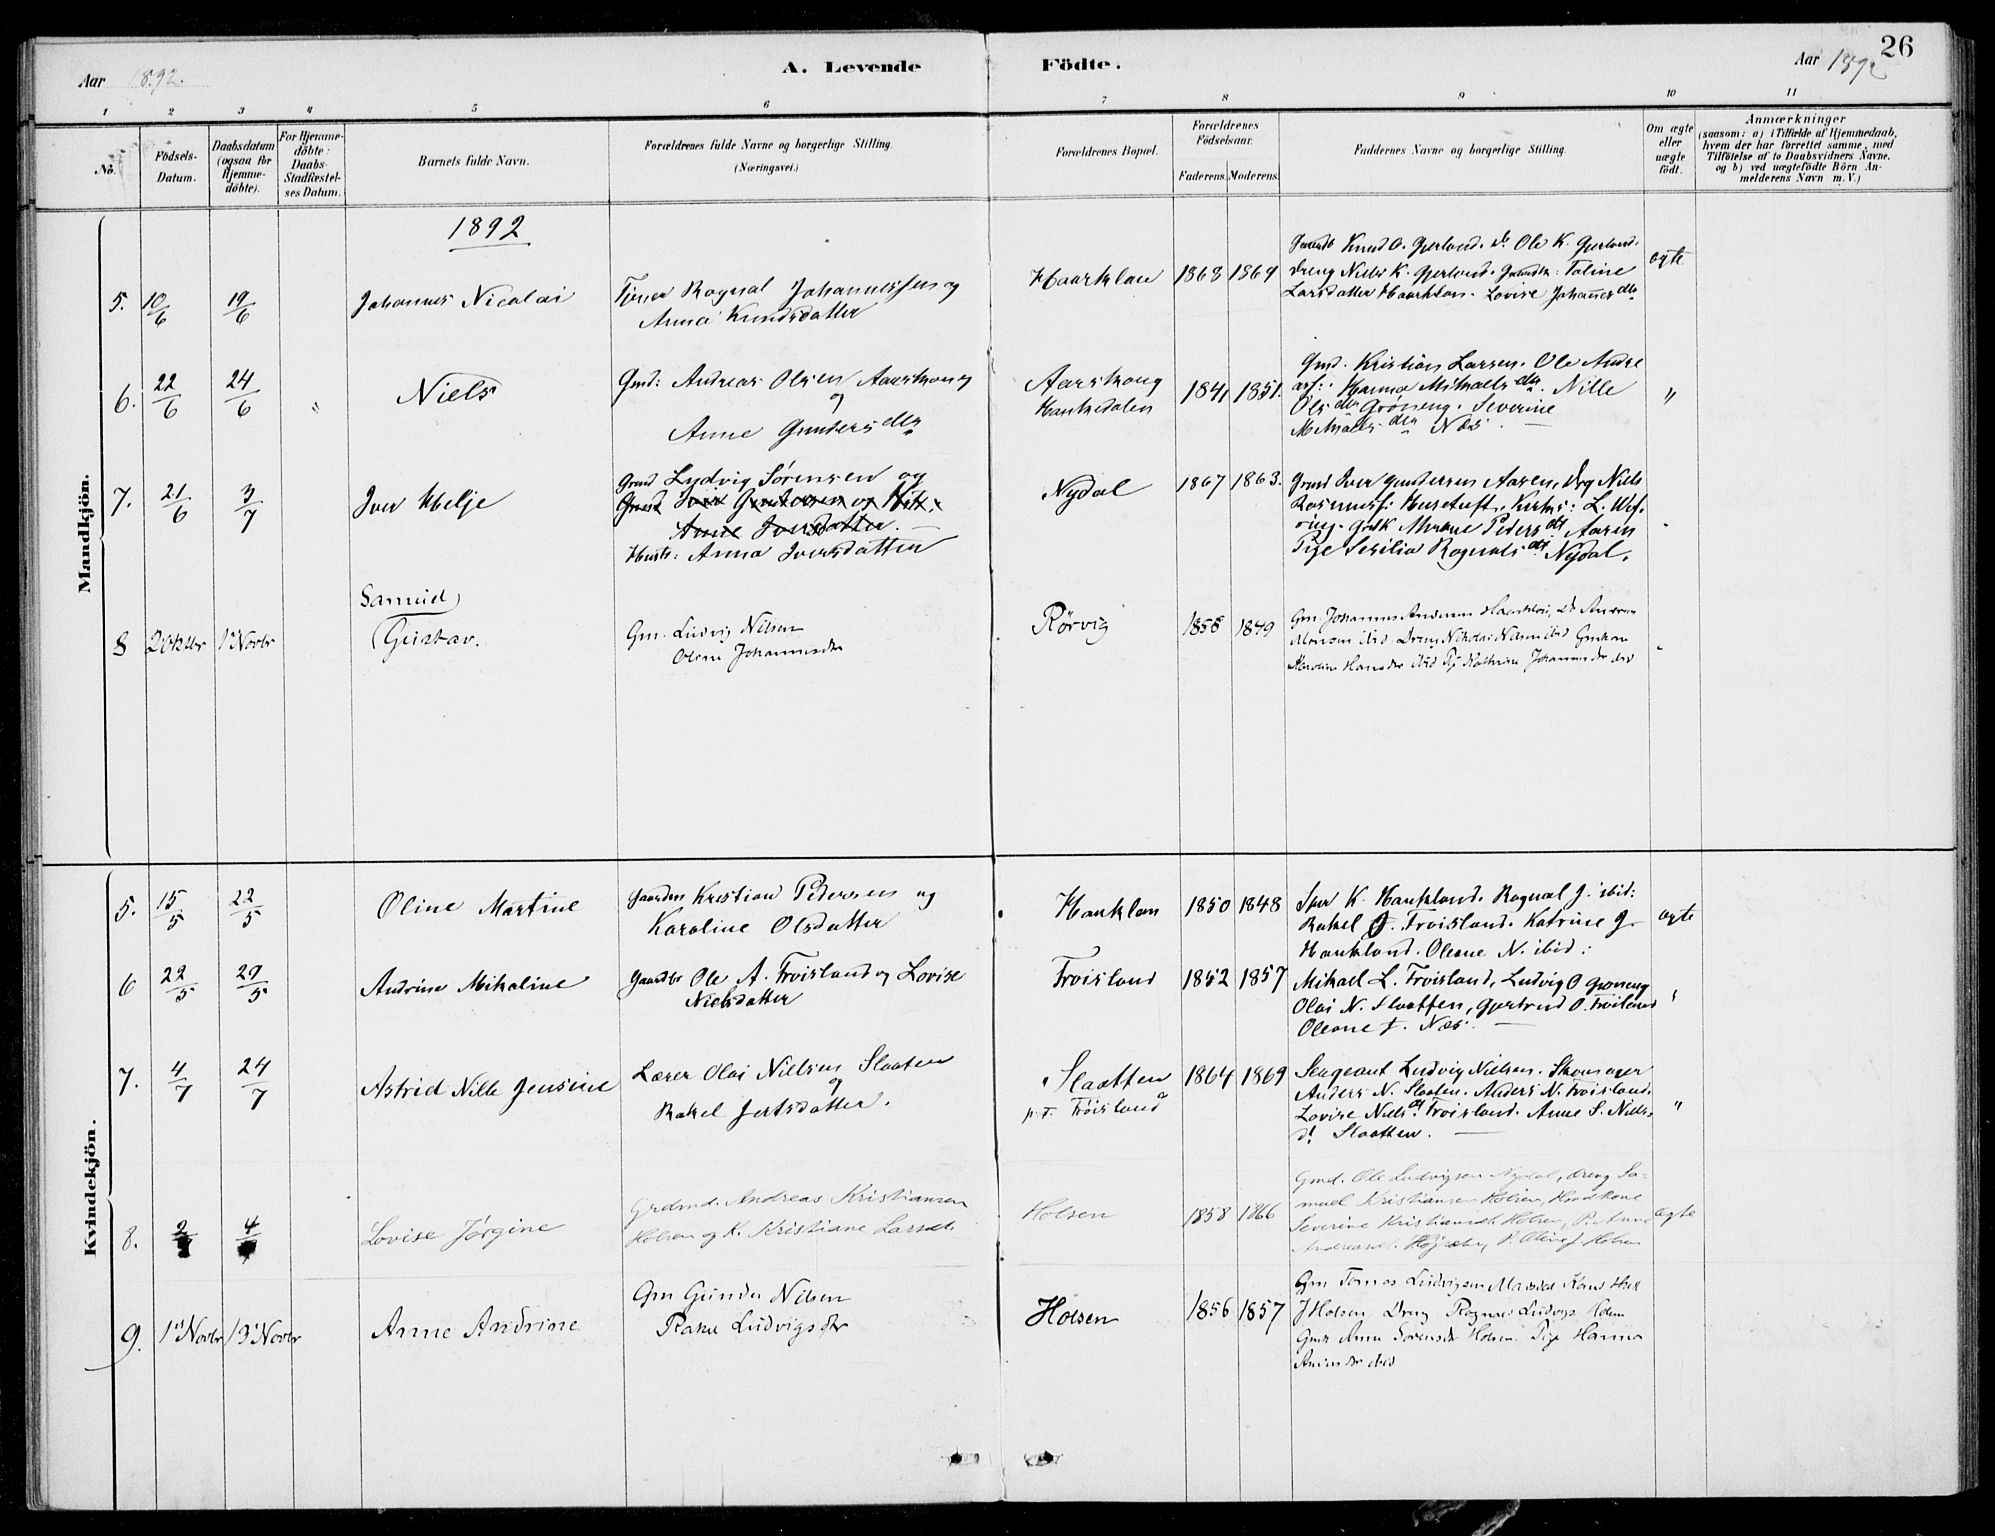 26
Aar 1892.
A. Levende Födte.
Aar 1892
1 2 3 4 5 6 7 8 9 10 11
No.
Födsels-Datum.
Daabsdatum (ogsaa for Hjemme-döbte).
For Hjemme-döbte: Daabs-Stadfæstel-ses Datum.
Barnets fulde Navn.
Forældrenes fulde Navne og borgerlige Stilling. (Næringsvei.)
Forældrenes Bopæl.
Forældrenes Födselsaar.
Faderens. Moderens.
Faddernes Navne og borgerlige Stilling.
Om ægte eller uægte födt.
Anmærkninger
(saasom: a) i Tilfælde af Hjemmedaab,
hvem der har forrettet samme, med
Tilföielse af to Daabsvidners Navne,
og b) ved uægtefödte Börn An-
melderens Navn m. V.)
Mandkjön.
1892
5. 10/6 19/6 Johannes Nicolai
Tjener Rognal Johannessen og
Anna Knudsdatter
Haarklau 1868 1869
Knud O. Gjerlond. Ole K. Gjerlond.
Dreng Niels K. Gjerlond. Taline
Larsdatter Haarklau. Lovise Johannesdtr
ægte
6. 22/6 24/6 " Niels
Gmd: Andreas Olsen Aarskoug
og
Anne Gundersdtr
Aarskoug
Haukedalen
1841 1851.
Gmd. Kristian Larsen. Ole Andre
asf: Hanna Mikaelsdtr. Nille
Olsdtr Grøneng. Severine
Mikaelsdtr Næs.
"
7. 21/6 3/7 Iver Helje
Gmd Lydvig Sørensen og
Gmd Iver Gundersen og
Anne Iversdatter.
Hustr: Anna Iversdatter
Nydal 1867 1863.
Gmd Iver Gundersen Aasen, Drg Niels
Rasmusf: L. Wef-
ring. Pedersdt Aasen
Pige Sesilia Rognalsdt Nydal.
8 2 Oktbr 1ste Novbr
Samuel
Gustav.
Gm. Ludvig Nilsen
Oline Johannesdtr
Rörvig 1855 1849
Gm. Johannes Andersen Haarklau,
Monsen ibid Dreng Nikolai Nilsen ibid
Karoline Hansdtr ibid Pige Kathrine Johannesdtr ibid
Kvindekjön.
5. 15/5 22/5 Oline Martine
Gaardm Kristian Pedersen og
Karoline Olsdatter
Hauklan 1850 1848
Iver K. Haukland. Rognal J. ibid:
Rakel J. Froisland. Katrine J.
Haukland. Oleane N. ibid:
ægte
6 22/5 29/5 Andrine Mikaline
Gaardbr Ole A. Froisland og Lovise
Nielsdatter
Froisland 1852 1857
Mikael L. Froisland, Ludvig O Grøneng
Olai N. Slaatten, Gjertrud O. Froisland
Oleane J. Næs.
"
7. 4/7 24/7 Astrid Nille Jensine
Lærer Olai Nielsen Slaaten
og
Rakel Jertsdatter.
Slaatten
p. t. Fröisland
1864 1869
Sergeant Ludvig Nielsen. Skomager
Anders N. Slaaten. Anders N. Froisland.
Lovise Nielsdt Froisland. Anne S. Niels-
dt Slaatten.
"
8. 2 4 Lovise Jørgine
Grdmd. Andreas Kristiansen
Holsen og K. Kristiane Larsdt.
Holsen 1858 1866
Gmd. Ole Ludvigsen Nydal, Dreng Sa-
muel Kristiansen Holsen,
Severine Kristiansdt Holsen, P. Anne
Andreasdt. P. Oline J. Holsen
ægte
9. 1ste Novbr 13de Novbr Anne Andrine
Gm Gunder Nilsen
Rakel Ludvigsdtr
Holsen 1856 1857
Gm Tomas Ludvigsen
J Holsen Dreng Rognal Ludvigs Holsen
Anne Sørensdtr Holsen Pige Hanna
ibid